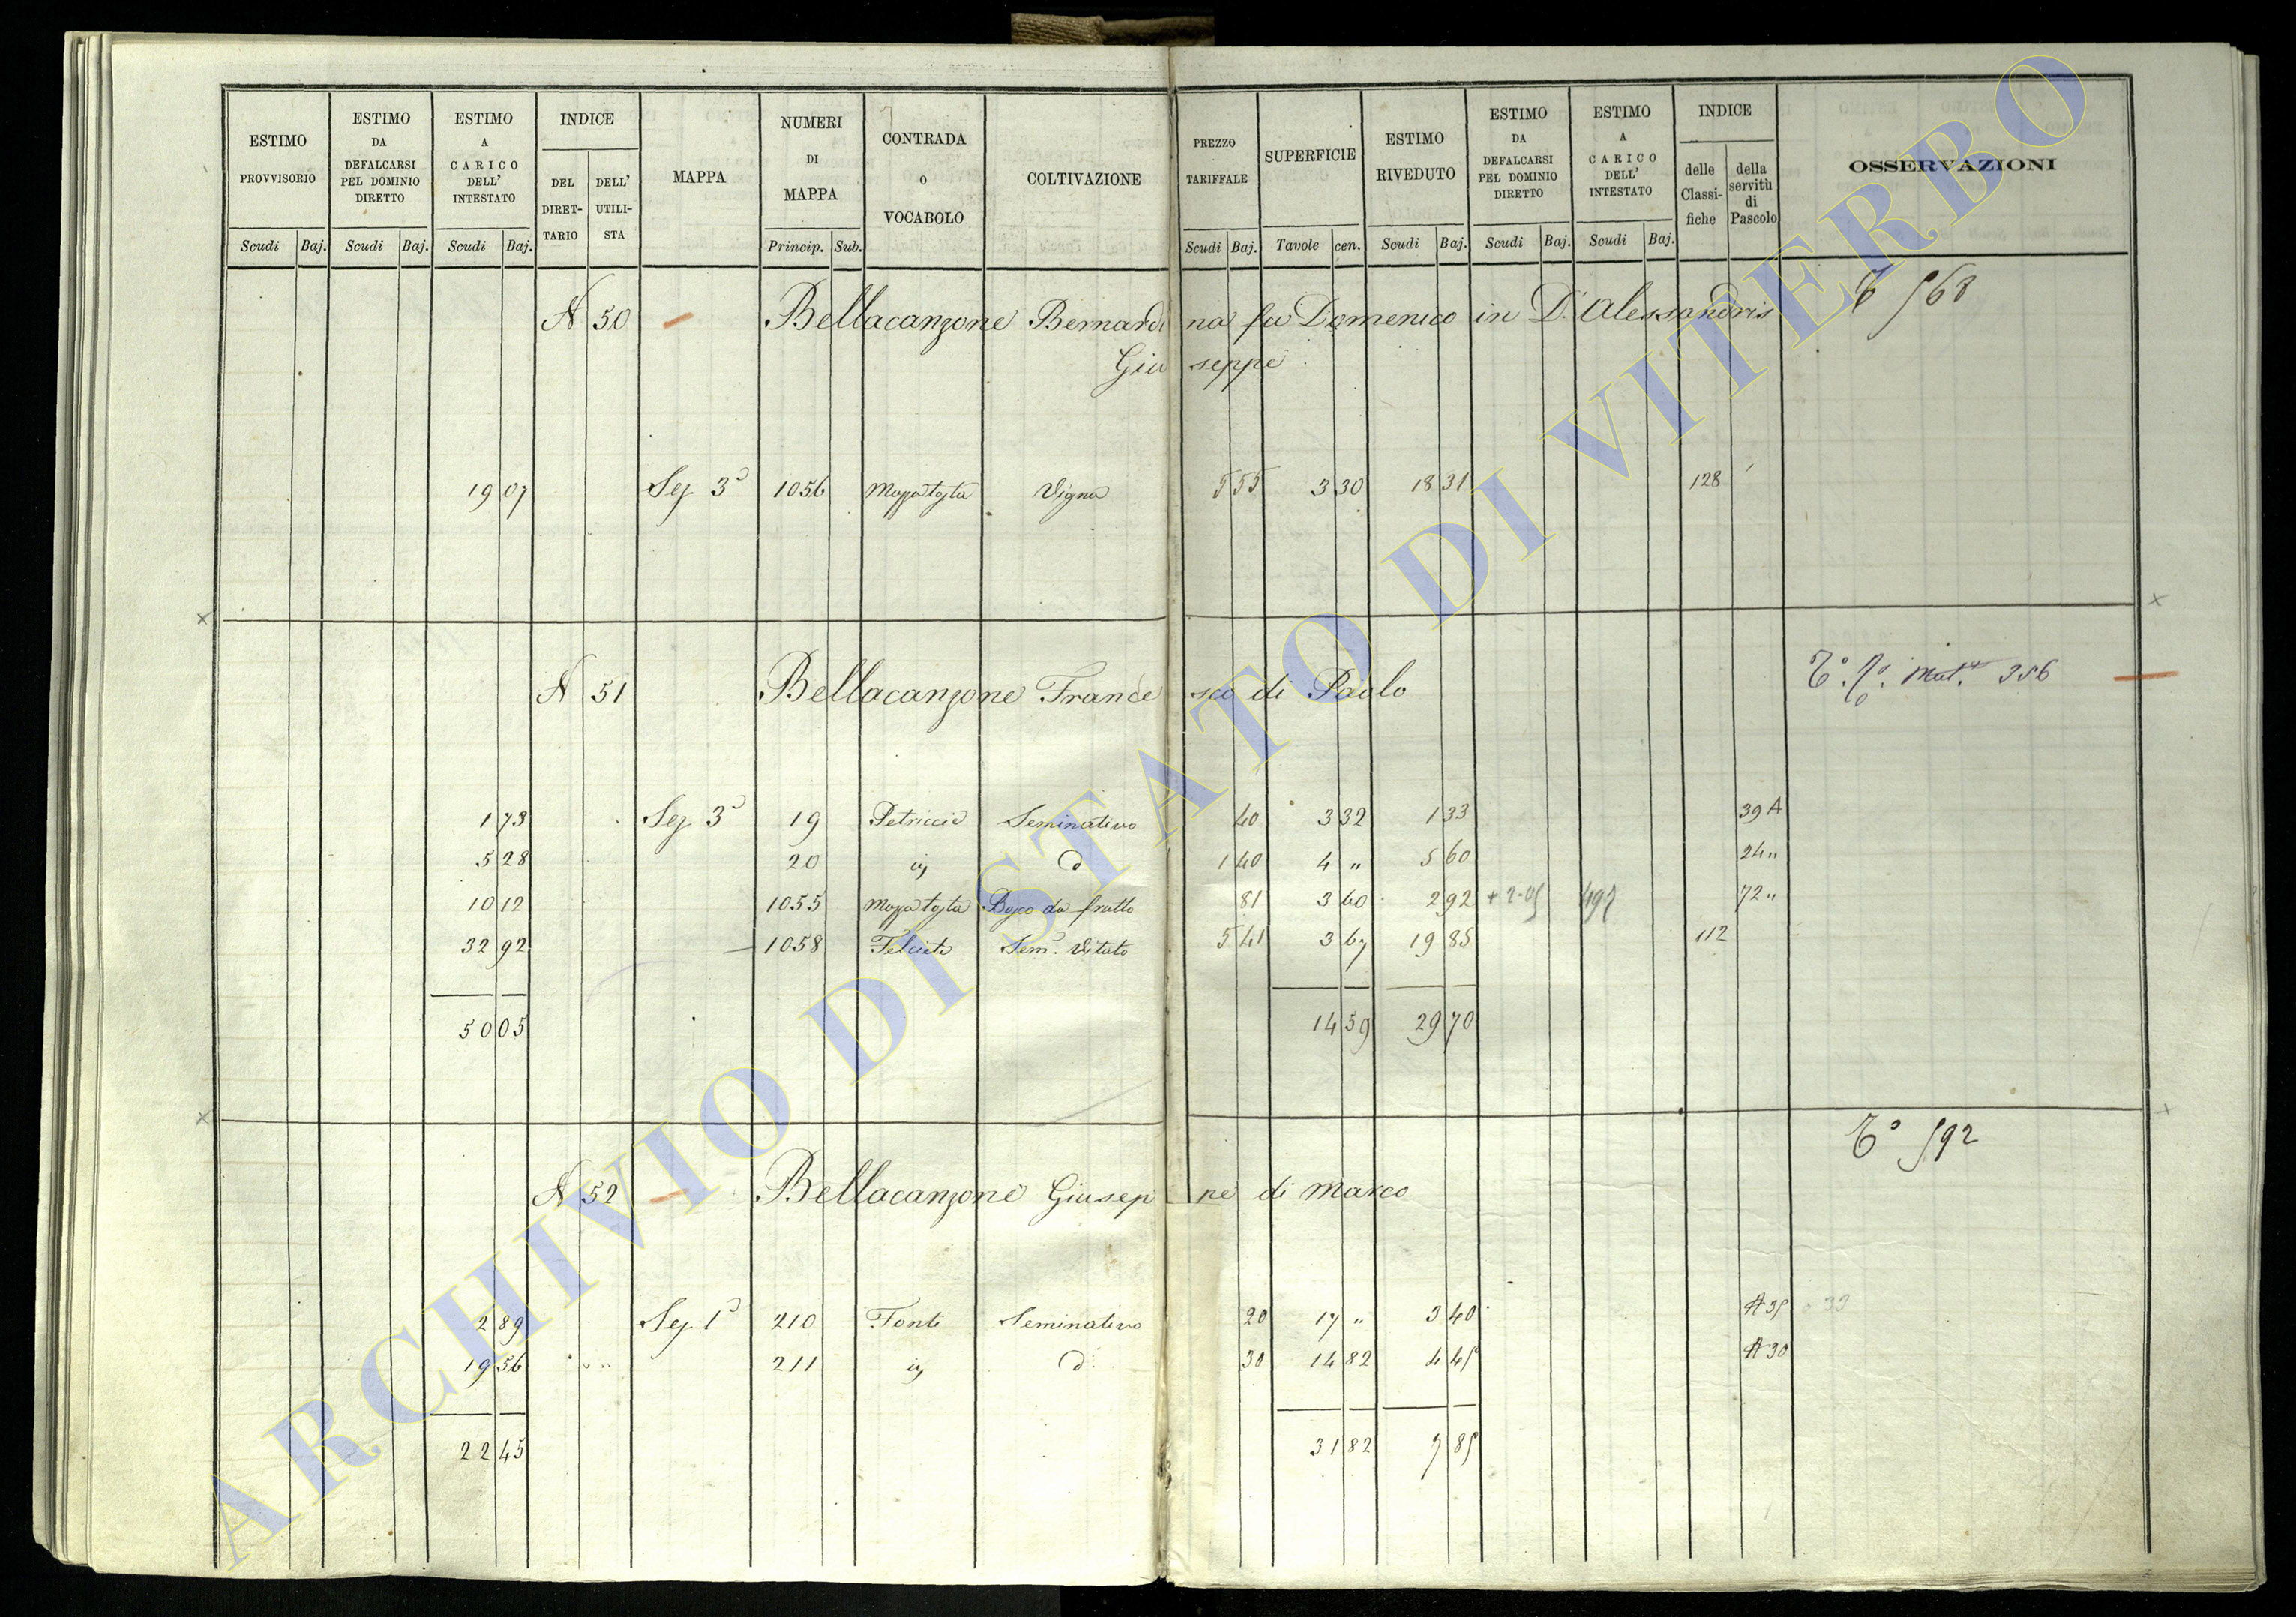 ESTIMO PROVVISORIO | ESTIMO DA DEFALCARSI PEL DOMINIO DIRETTO | ESTIMO A CARICO DELL' INTESTATO | INDICE | MAPPA | NUMERI DI MAPPA | CONTRADA O VOCABOLO | COLTIVAZIONE | PREZZO TARIFFALE | SUPERFICIE | ESTIMO RIVEDUTO | ESTIMO DA DEFALCARSI PEL DOMINIO DIRETTO | ESTIMO A CARICO DELL' INTESTATO | INDICE | OSSERVAZIONI
DEL DIRET-TARIO | DELL' UTILI-STA | delle Classi-fiche | della servitù di Pascolo
Scudi | Baj. | Scudi | Baj. | Scudi | Baj. | Princip. | Sub. | Scudi | Baj. | Tavole | cen. | Scudi | Baj. | Scudi | Baj. | Scudi | Baj.
N 50 Bellacanzone Bernardina fu Domenico in D'Alessandris 568
Giuseppe
19 07 Sez. 3a 1056 Vigna 5 55 3 30 18 31 128
N 51 Bellacanzone Francesco di Paolo Mut. 356
1 73 Sez. 3a 19 Petriccie Seminativo 40 3 32 1 33 39 A
5 28 20 id d 1 40 4 " 5 60 24 "
10 12 1055 Bosco da frutto 81 3 60 2 92 + 2-05 497 72 "
32 92 1058 Felceto Sem. Vitato 5 41 3 67 19 85 112
50 05 14 59 29 70
592
N 52 Bellacanzone Giuseppe di Marco
2 89 Sez. 1a 210 Fonte Seminativo 20 17 " 3 40 A 35 33
19 56 211 id d 30 14 82 4 45 A 30
22 45 31 82 7 85
ARCHIVIO DI STATO DI VITERBO